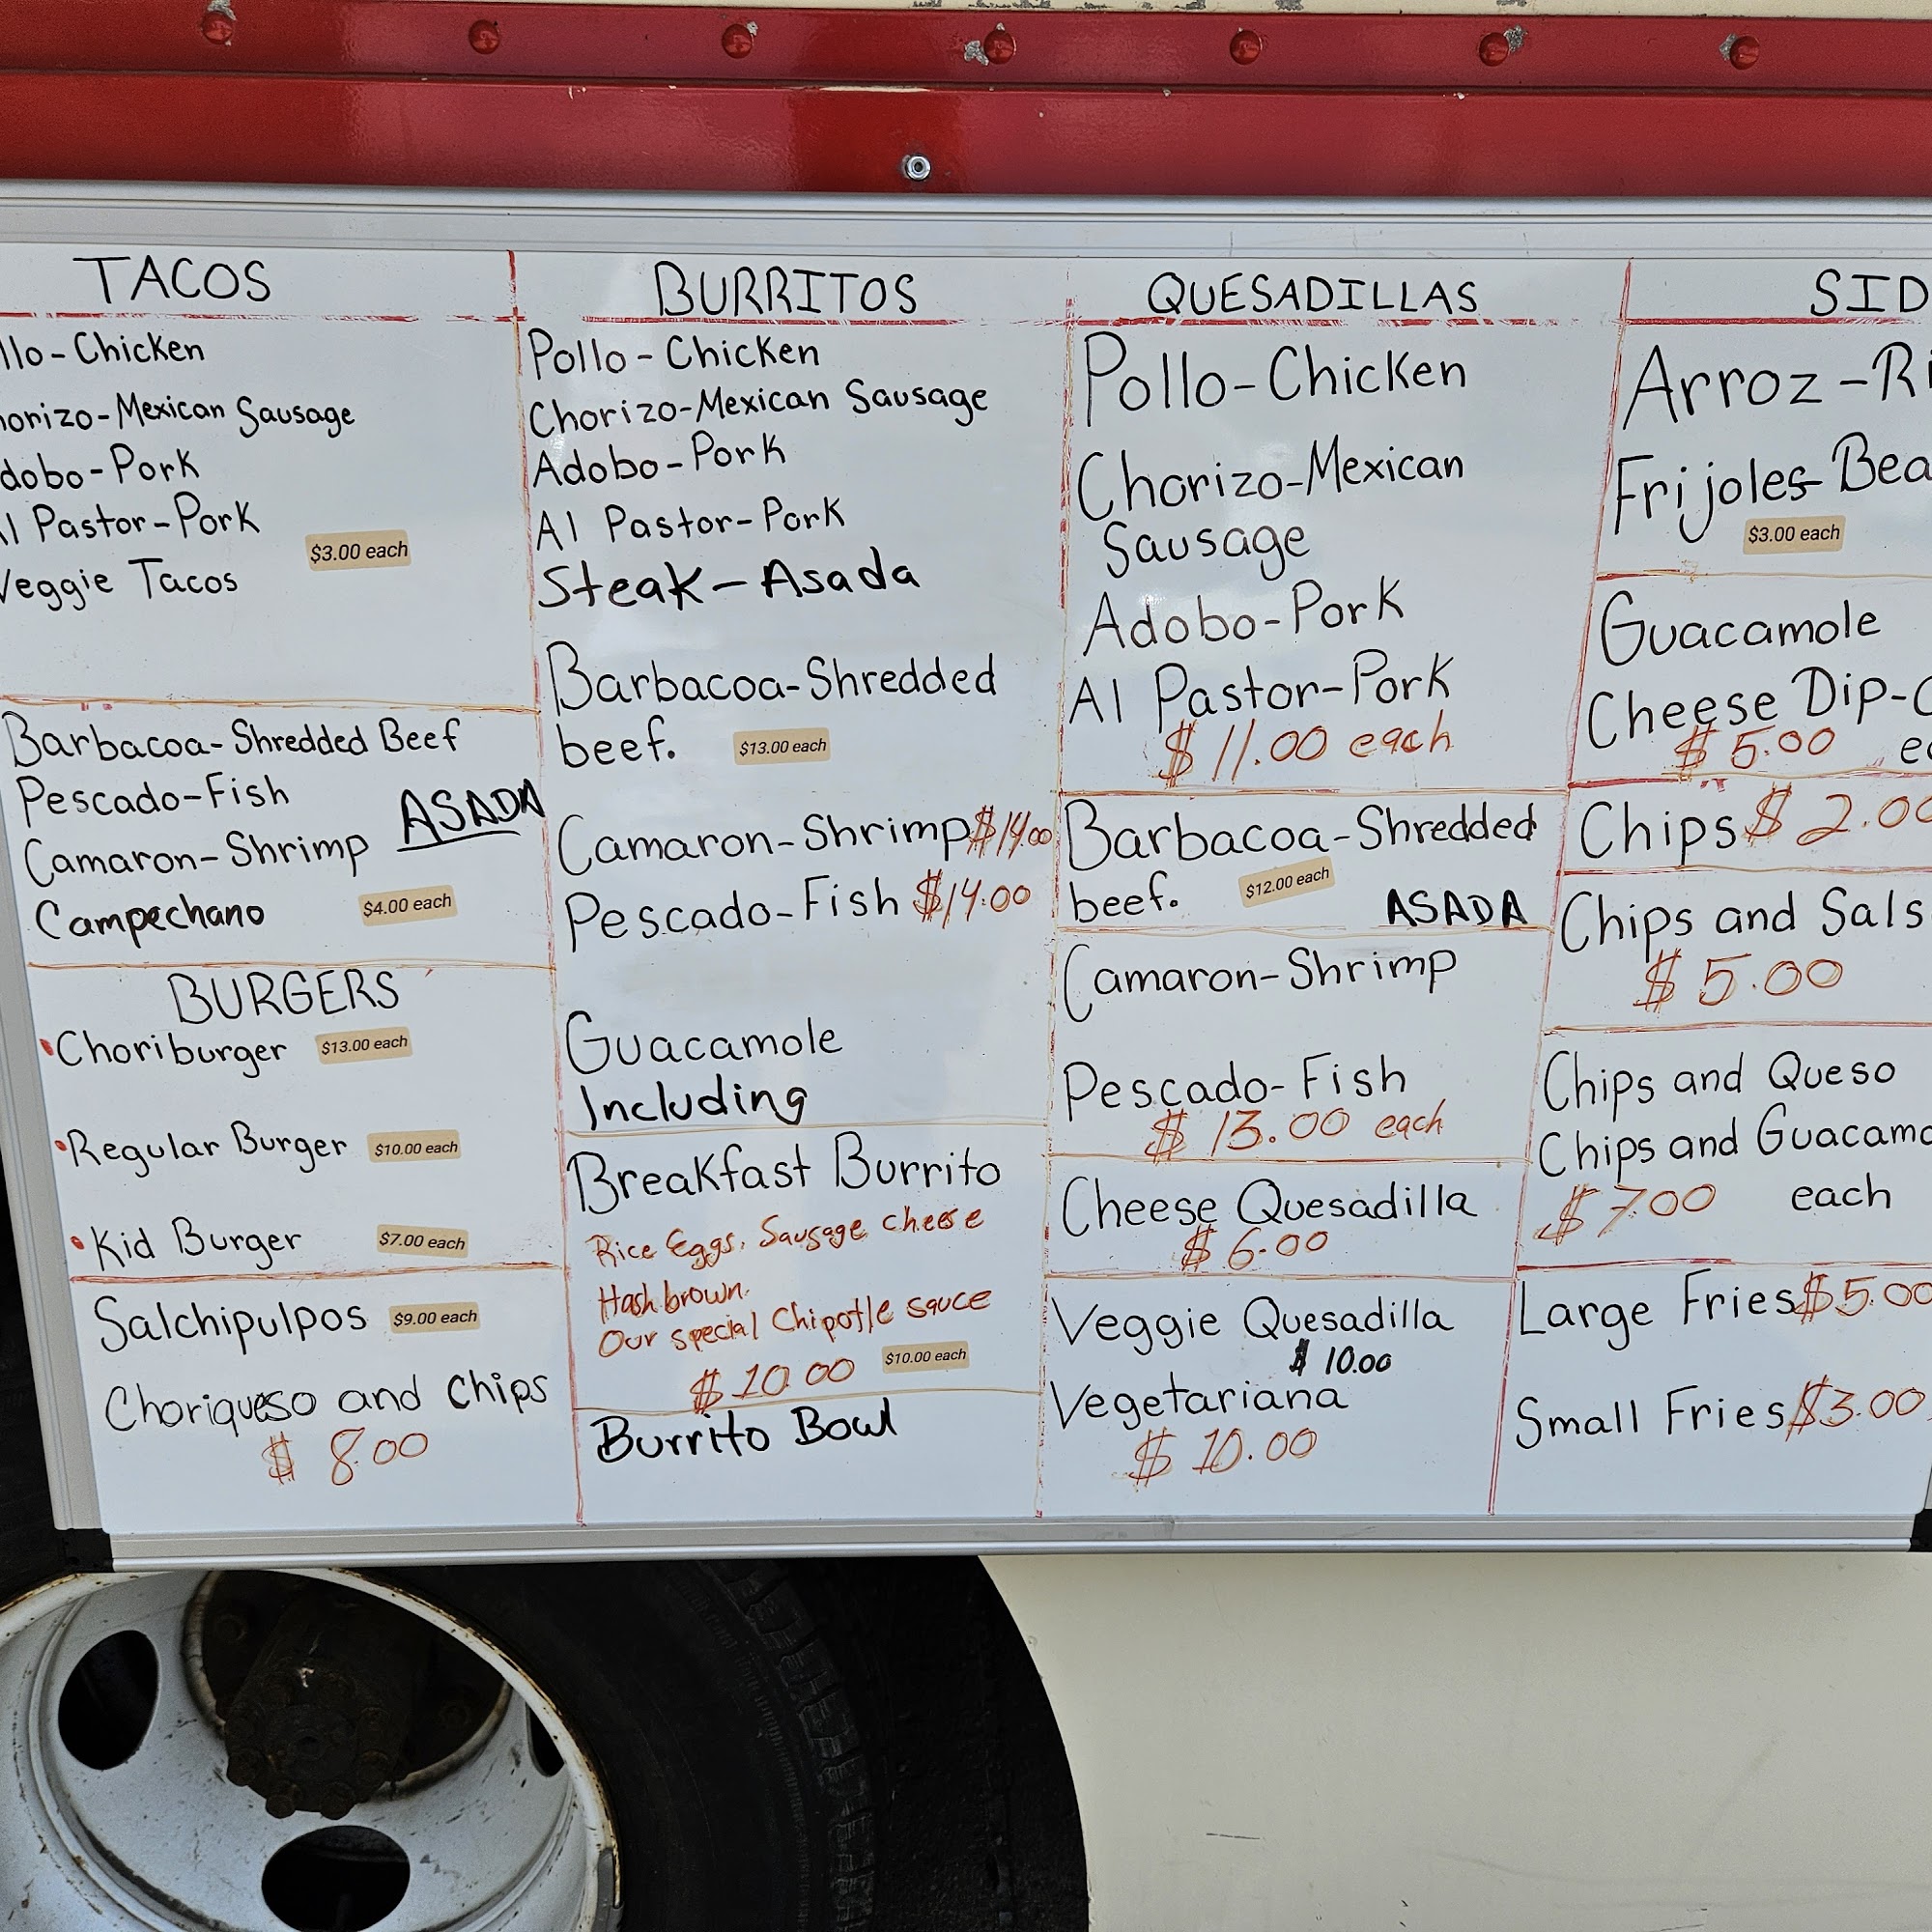 TACOS
llo-Chicken
horizo-Mexican Sausage
dobo-Pork
Al Pastor-Pork
$3.00 each
Veggie Tacos
Barbacoa-Shredded Beef
Pescado-Fish
ASADA
Camaron-Shrimp
Campechano
$4.00 each
BURGERS
Choriburger $13.00 each
Regular Burger $10.00 each
Kid Burger $7.00 each
Salchipulpos $9.00 each
Choriqueso and Chips
$ 8.00
BURRITOS
Pollo-Chicken
Chorizo-Mexican Sausage
Adobo-Pork
Al Pastor-Pork
Steak-Asada
Barbacoa-Shredded
beef. $13.00 each
Camaron-Shrimp $14.00
Pescado-Fish $14.00
Guacamole
Including
Breakfast Burrito
Rice Eggs, Sausage cheese
Hash brown.
Our special Chipotle sauce
$ 10.00 $10.00 each
Burrito Bowl
QUESADILLAS
Pollo-Chicken
Chorizo-Mexican
Sausage
Adobo-Pork
Al Pastor-Pork
$ 11.00 each
Barbacoa-Shredded
beef. $12.00 each
ASADA
Camaron-Shrimp
Pescado-Fish
$ 13.00 each
Cheese Quesadilla
$ 6.00
Veggie Quesadilla
$ 10.00
Vegetariana
$ 10.00
SID
Arroz-Ri
Frijoles-Bea
$3.00 each
Guacamole
Cheese Dip-
$ 5.00 ea
Chips $ 2.00
Chips and Sals
$ 5.00
Chips and Queso
Chips and Guacamo
$ 7.00 each
Large Fries $5.00
Small Fries $3.00